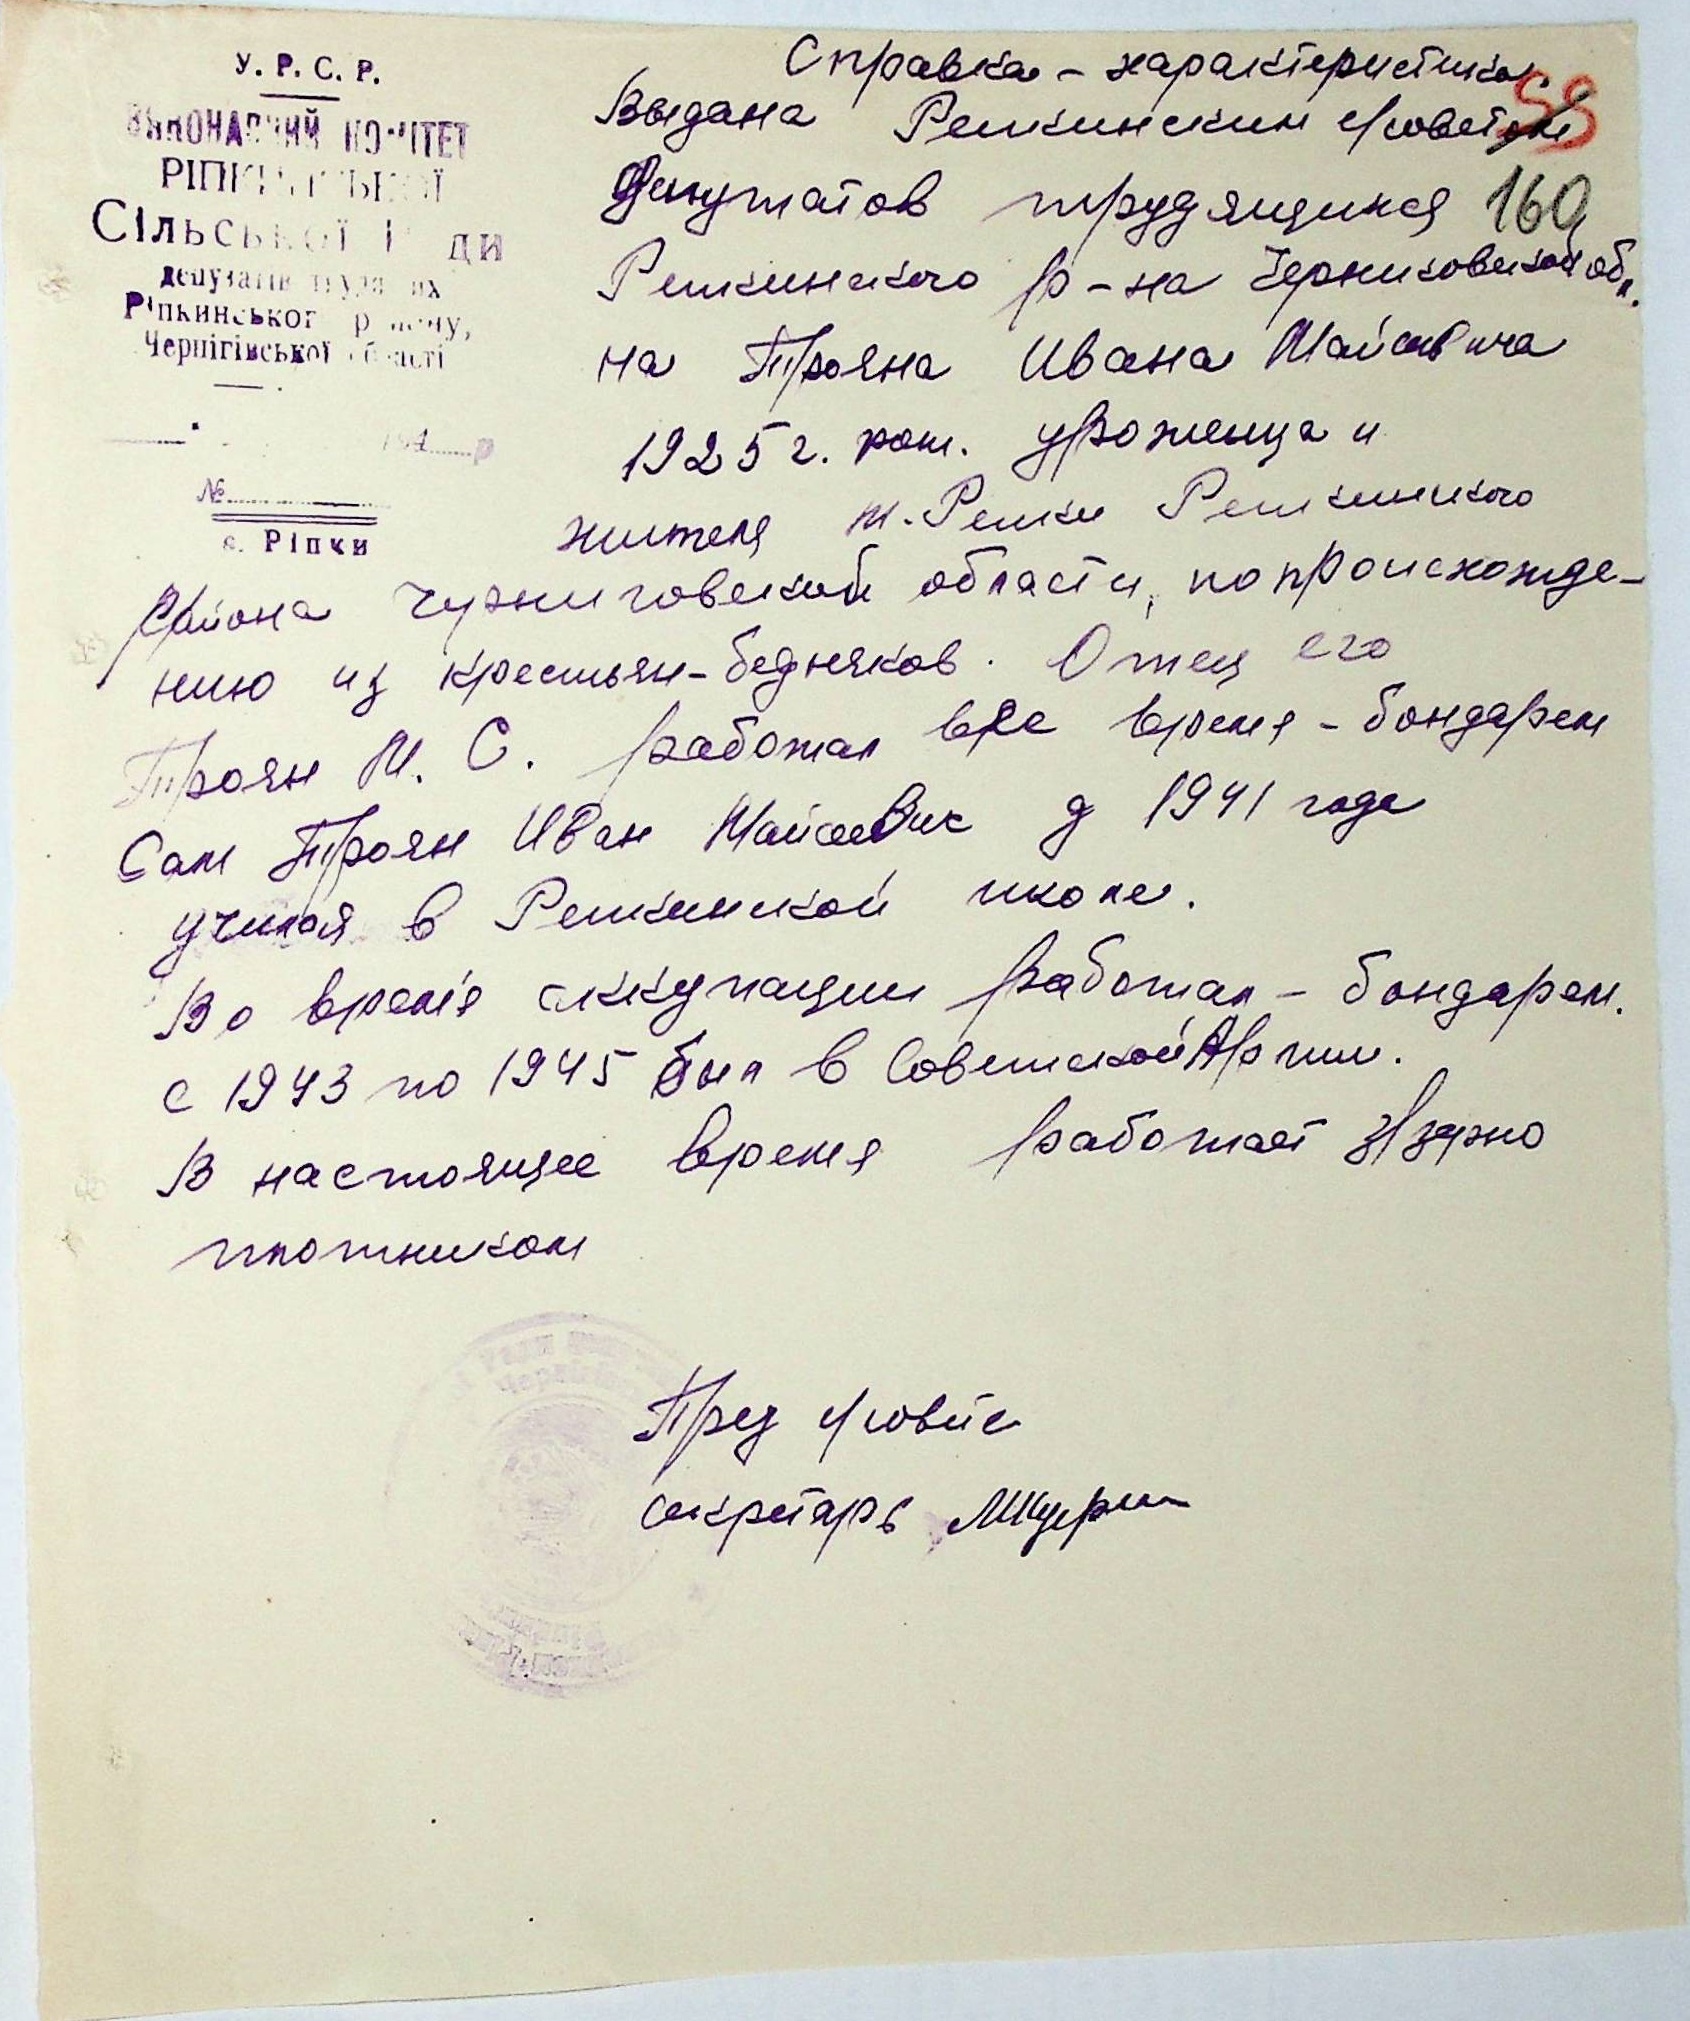 У. Р. С. Р.
ВИКОНАВЧИЙ КОМІТЕТ
РІПКИНСЬКОЇ
Сільської Ради
депутатів трудящих
Ріпкинського району,
Чернігівської області
194 р
№
с. Ріпки
Справка - характеристика.
58
Выдана Репкинским с/советом
Депутатов трудящихся
160
Репкинского р-на Черниговской обл.
на Трояна Ивана Мойсевича
1925 г. рож. уроженца и
жителя м. Репки Репкинского
района Черниговской области, по происхожде-
нию из крестьян-бедняков. Отец его
Троян М. С. работал все время - бондарем
Сам Троян Иван Мойсевич д 1941 года
учился в Репкинской школе.
Во время оккупации работал - бондарем.
с 1943 по 1945 был в Советской Армии.
В настоящее время работает з/зерно
плотником
Пред с/совета
секретарь